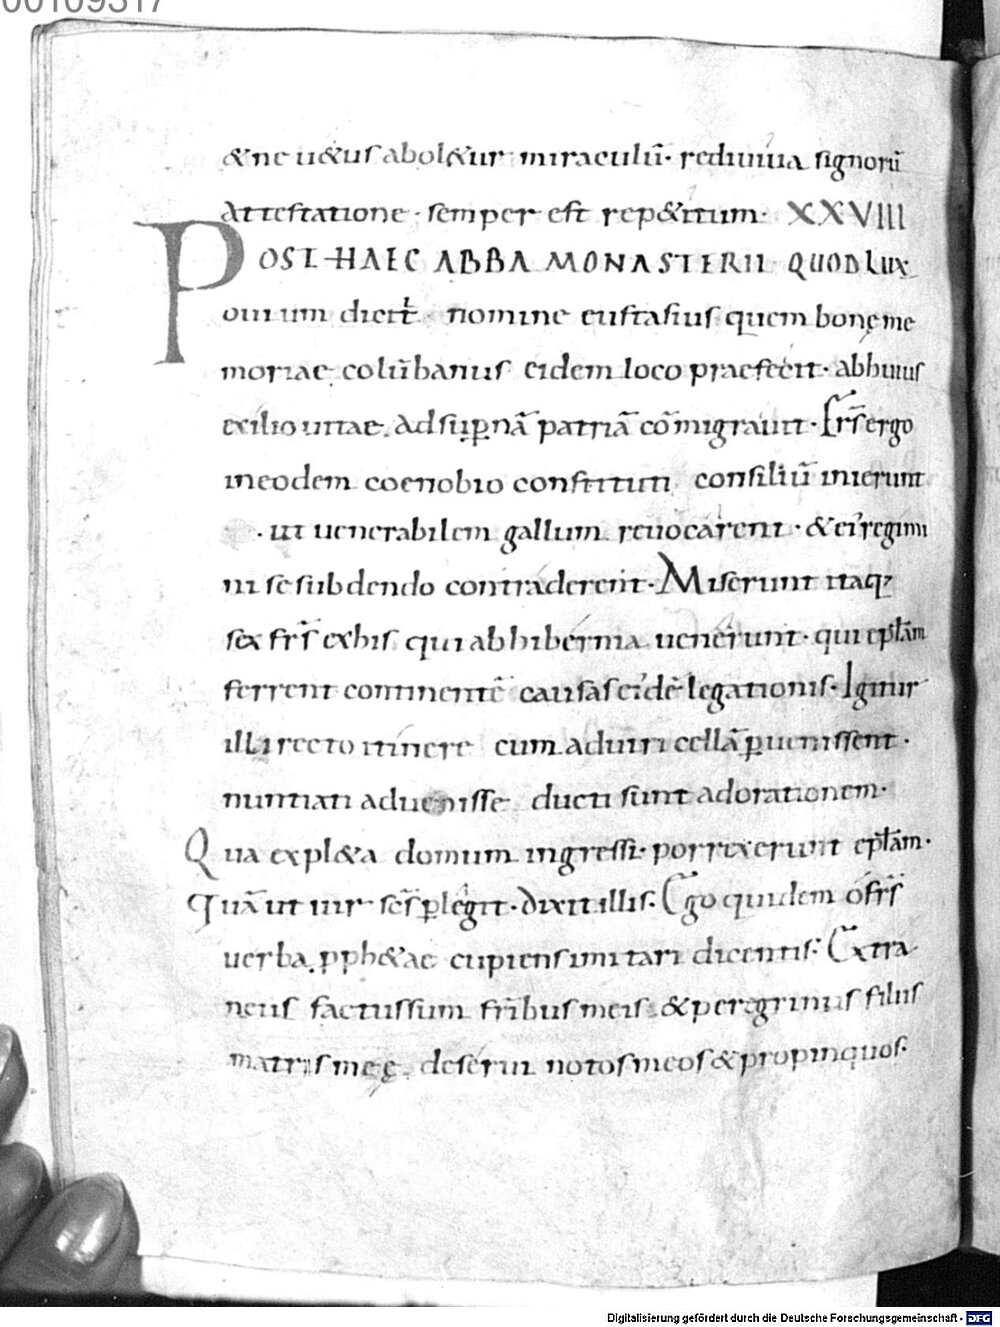 00109317
&ne u&us abol&ur miraculū· rediuiua signorū
attestatione · semper est rep&itum· XXVIII
POST HAEC ABBA MONASTERII QUOD LUX
ouium dicit̄ · nomine eustasius quem bonę me
moriae colūbanus eidem loco praefecit· ab huius
exilio uitae. ad sup̱nā patriā cōmigrauit · Fr̄s ergo
in eodem coenobio constituti consiliū inierunt
· ut uenerabilem gallum reuocarent · & ei' regimi
ni se subdendo contraderent· Miserunt itaq;
sex fr̄s ex his qui ab hibernia uenerunt· qui ep̄lam
ferrent continentē causas eidē legationis· Igitur
illi recto itinere cum ad uiri cellā p̱uenissent ·
nuntiati aduenisse ducti sunt ad orationem·
Qua expl&a domum ingressi· porrexerunt ep̄lam·
Quā ut uir sc̄s p̱legit · dixit illis· Ego quidem o fr̄s
uerba pph&ae cupiens imitari dicentis· Extra
neus factus sum fr̄ibus meis & peregrinus filiis
matris meę deserui notos meos & propinquos·
Digitalisierung gefördert durch die Deutsche Forschungsgemeinschaft - DFG